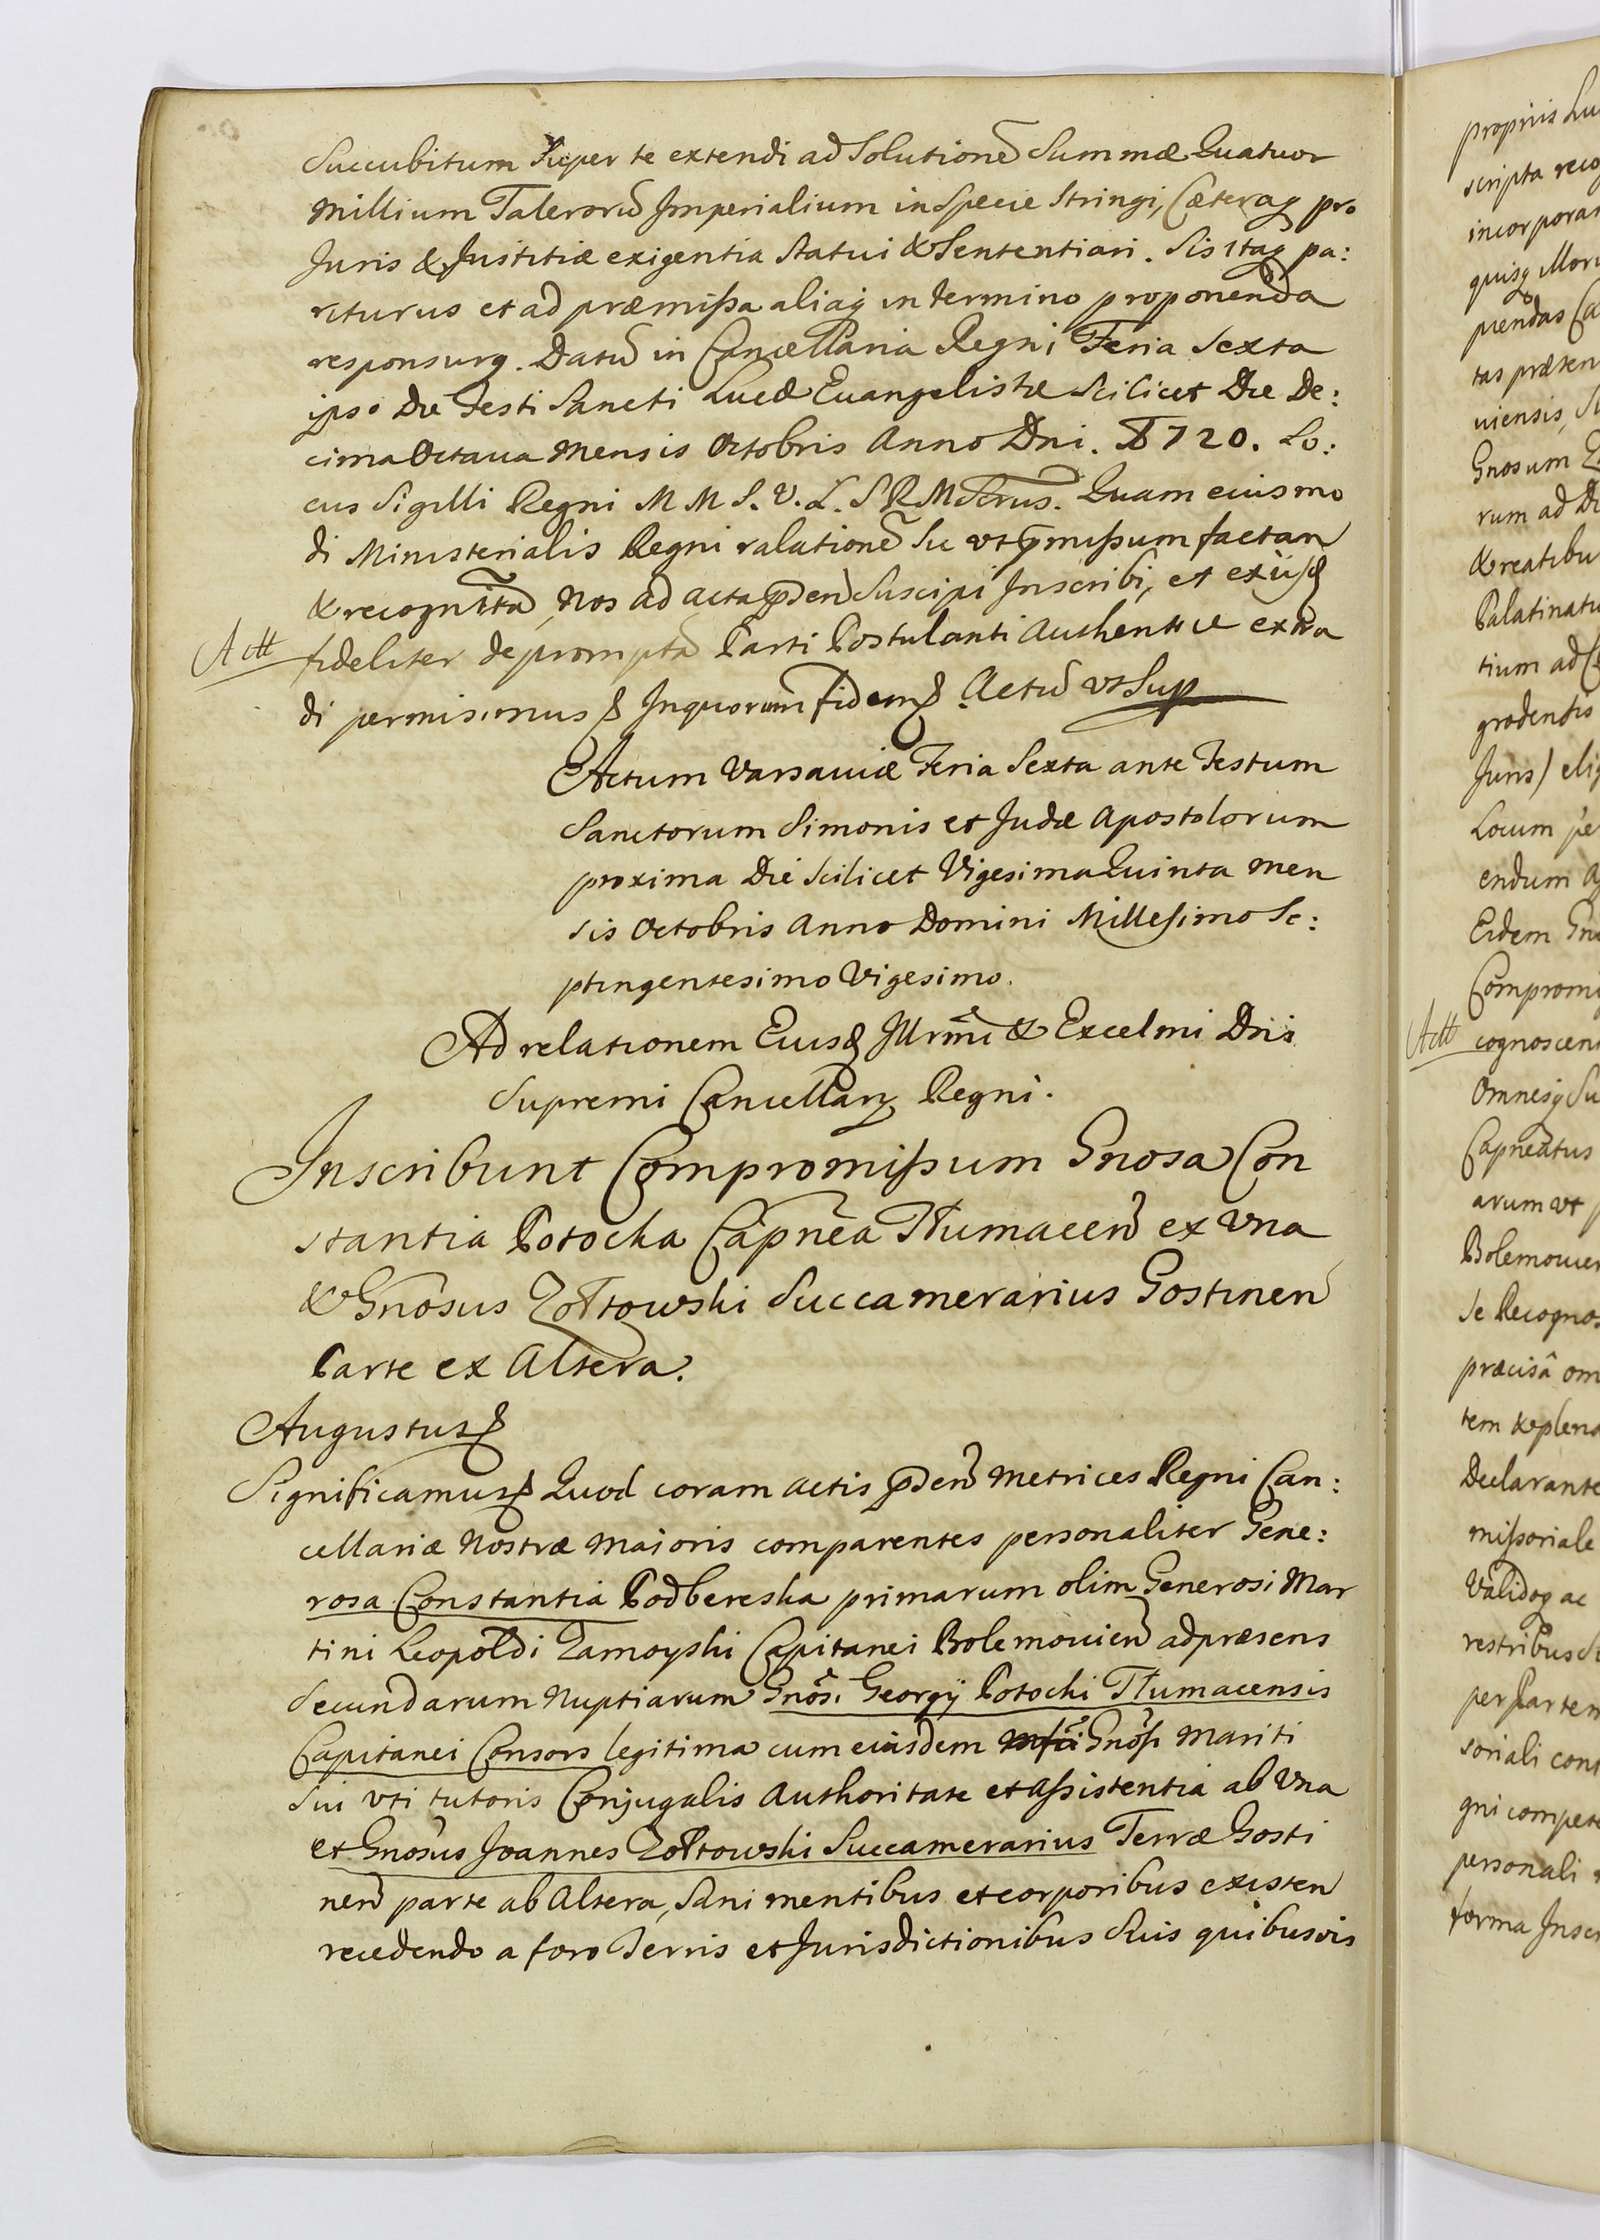 Succubitum super te extendi ad Solutionē Summæ Quatuor
Millium Talerorū Imperialium in Specie Stringi, Cæteraq pro
Juris & Justitiæ exigentia Statui & Sententiari. Sis itaq pa:
riturus et ad præmissa aliaq in termino proponenda
responsurq. Datū in Cancellaria Regni Feria Sexta
ipso Die Festi Sancti Lucæ Euangelistæ Scilicet Die De:
cima Octaua Mensis Octobris Anno Dni. 1720. Lo:
cus Sigilli Regni M M S. V. L. S R M Scrius. Quam eiusmo
di Ministerialis Regni ralationē Su vt pmissum factan
& recognitā, Nos ad acta pden Suscipi Inscribi, et exijsd
Act fideliter depromptā Parti Postulanti Authentice extra
di permisimus & Inquorum fidem & Actū vt Sup
Actum Varsauiæ Feria Sexta ante Festum
Sanctorum Simonis et Judæ Apostolorum
proxima Die Scilicet Vigesima Quinta Men
sis Octobris Anno Domini Millesimo Se:
ptingentesimo Vigesimo.
Ad relationem Eiusd Illrmi & Excelmi Dnis
Supremi Cancellary Regni.
Inscribunt Compromissum Gnosa Con
stantia Potocka Capnea Tłumacen ex Vna
& Gnosus Zołtowski Succamerarius Gostinen
Parte ex Altera.
Augustus &
Significamus & Quod coram actis pden Metrices Regni Can:
cellariæ Nostræ Maioris comparentes personaliter Gene:
rosa Constantia Podbereska primarum olim Generosi Mar
tini Leopoldi Zamoyski Capitanei Bolemouien ad præsens
Secundarum Nuptiarum Gnosi Georgÿ Potocki Tłumacensis
Capitanei Consors legitima cum eiusdem Gnosi Mariti
Sui vti tutoris Conjugalis Authoritate et Assistentia ab Vna
et Gnosus Joannes Zołtowski Succamerarius Terræ Gosti
nen parte ab Altera, Sani mentibus et corporibus existen
recedendo a foro Terris et Jurisdictionibus Suis quibusvis
propriis
scripta
incorporar
quisq illoru
piendas
tas præsen
uiensis
Gnosum
rum ad
& reatibu
Palatinatu
tium ad
grodensis
Juris) elig
Locum pe
endum
Eidem Gno
Compromi
Act cognoscen
Omnesq Su
Capneatus
arum vt
Bolemouien
Se Recognos
præcisâ om
tem & plena
Declarante
missoriale
Validoq ac
restribus
per Partem
soriali con
gni compet
personali
forma Inscr